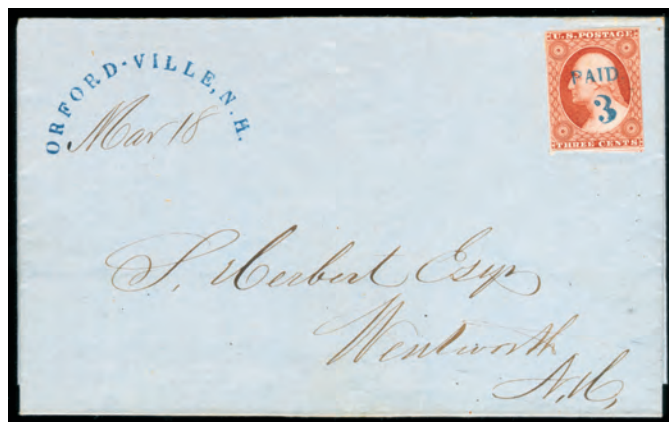 ORFORD-VILLE, N.H.
Mar 18
U.S. POSTAGE
PAID
3
THREE CENTS
S. Herbert Esqr
Wentworth
N.H,